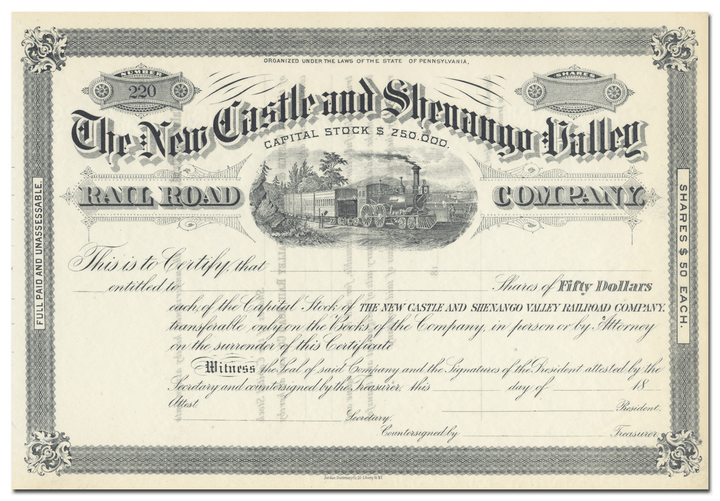 ORGANIZED UNDER THE LAWS OF THE STATE OF PENNSYLVANIA.
NUMBER
220
SHARES
The New Castle and Shenango Valley
CAPITAL STOCK $ 250.000.
RAIL ROAD COMPANY.
FULL PAID AND UNASSESSABLE.
SHARES $ 50 EACH.
This is to Certify, that
entitled to Shares of Fifty Dollars
each, of the Capital Stock of THE NEW CASTLE AND SHENANGO VALLEY RAILROAD COMPANY,
transferable only on the Books of the Company, in person or by Attorney
on the surrender of this Certificate
Witness the Seal of said Company and the Signatures of the President attested by the
Secretary and countersigned by the Treasurer, this day of 18
Attest President,
Secretary.
Countersigned by Treasurer.